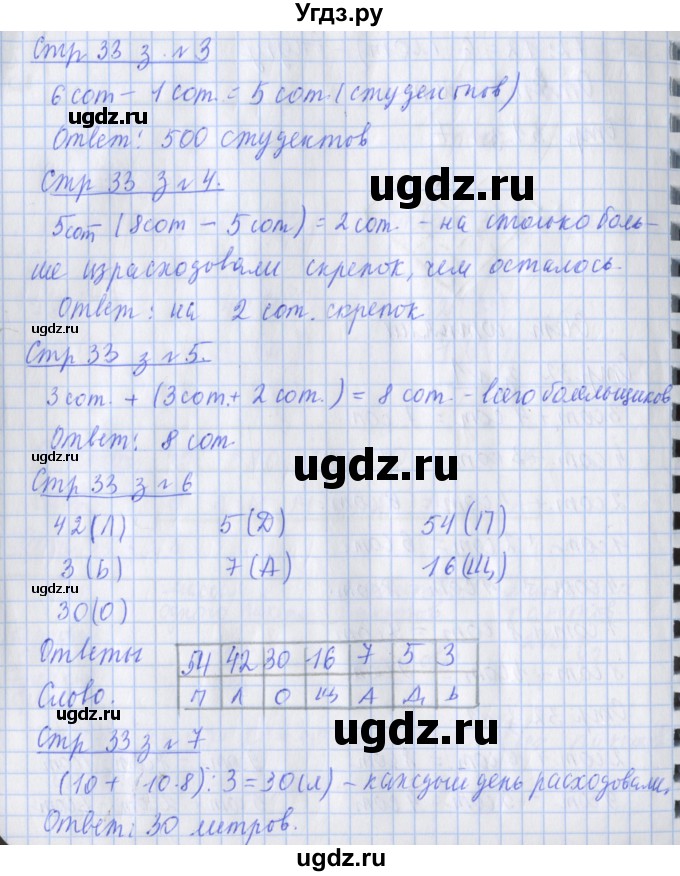 Угдз.ру
Стр 33 з №3
6 сот - 1 сот. = 5 сот. (студентов)
Ответ: 500 студентов
Стр 33 з №4.
5 сот (8 сот - 5 сот) = 2 сот. - на столько боль-
ше израсходовали скрепок, чем осталось.
Ответ: на 2 сот. скрепок
Стр 33 з №5.
3 сот. + (3 сот. + 2 сот.) = 8 сот. - всего болельщиков
Ответ: 8 сот.
Стр 33 з №6
42 (Л) 5 (Д) 54 (П)
3 (Ь) 7 (А) 16 (Щ)
30 (О)
Ответы 54 42 30 16 7 5 3
Слово. П Л О Щ А Д Ь
Стр 33 з №7
(10 + 10·8) : 3 = 30 (л) - каждый день расходовали.
Ответ: 30 литров.
ugdz.ru
ugdz.ru
ugdz.ru
ugdz.ru
ugdz.ru
ugdz.ru
ugdz.ru
ugdz.ru
ugdz.ru
ugdz.ru